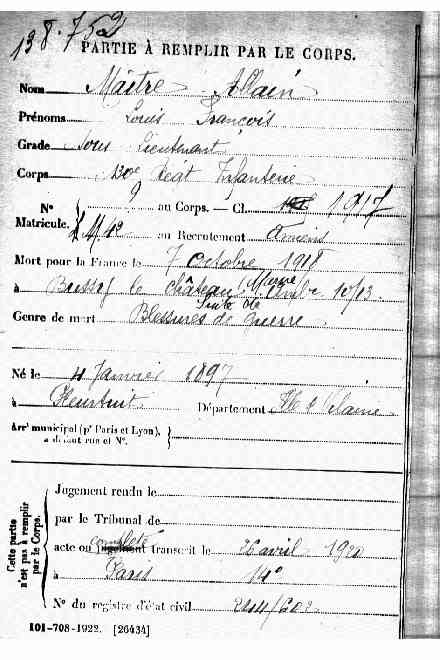 138.752
PARTIE À REMPLIR PAR LE CORPS.
Nom Maitre Allain
Prénoms Louis François
Grade Sous Lieutenant
Corps 130e Régt Infanterie
N° 9 au Corps. — Cl. 1917
Matricule. au Recrutement Amiens
Mort pour la France le 7 octobre 1918
à Bussy le château Marne Amb. 10/13
Genre de mort Suite de Blessures de guerre
Né le 4 Janvier 1897
à Pleurtuit Département Ille & Vilaine
Arrt municipal (pr Paris et Lyon),
à défaut rue et N°.
Cette partie n'est pas à remplir par le Corps.
Jugement rendu le
par le Tribunal de
acte ou jugement complété transcrit le 26 avril 1920
à Paris 14e
N° du registre d'état civil 244/602
101-708-1922. [26434]